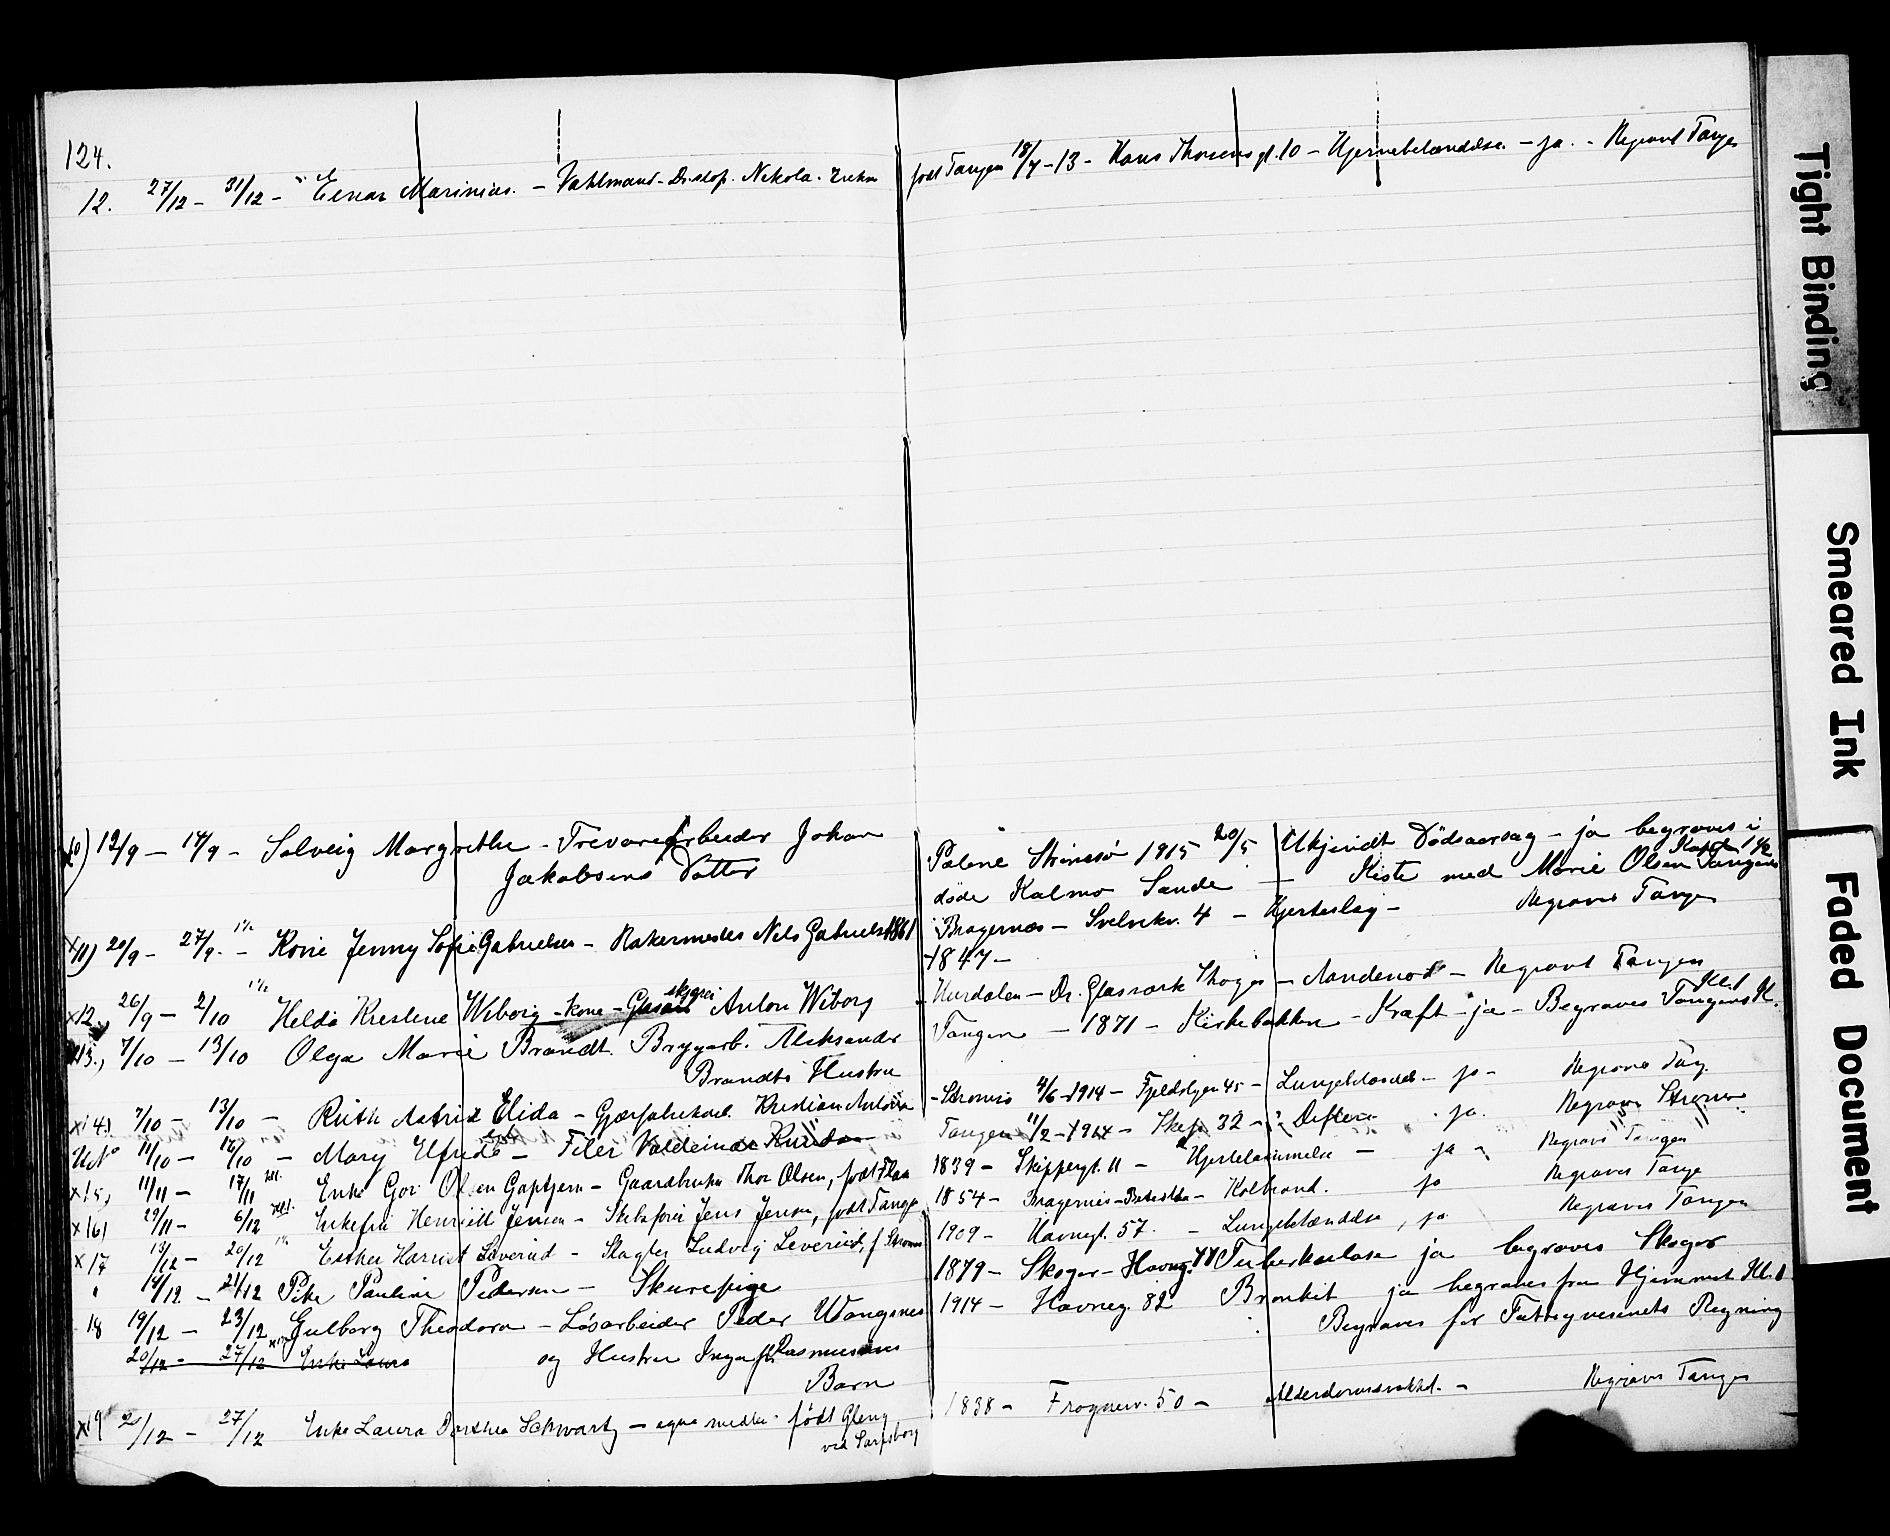 124.
12. 27/12 - 31/12 - Einar Marinius. - Vahlmand - født Tangen 18/7 - 13 - Hans Thornes gt. 10 - Hjernebetændelse - ja. - Begravet Tangen
10) 12/9 - 14/9 - Solveig Margrethe - Trevarearbeider Johan Palene Strømsø 1915 20/5 Ukjendt Dødsaarsag - ja begraves i
Jakobsens Datter døde Kalmo Sande - Kiste med Marie Olsen Tangen
x11) 20/9 - 27/9 - Kone Jenny Sofie Gabrielsen - Nils Gabrielsen 1861 Bragernes - Svelvikv. 4 - Hjerteslag - Begraves Tangen
1847 -
x12, 26/9 - 2/10 Helda Kristine Wiborg - kone - Anton Wiborg Hurdalen - Dr. Glasværk Skoger - Aandenød - Begravet Tangen
x13., 7/10 - 13/10 Olga Marie Brandt. Bryggarb. Aleksander Tangen - 1871 - Kirkebakken - Kræft - ja - Begraves Tangens Kl. 1
Brandts Hustru
x14) 7/10 - 13/10 - Ruth Astrid Elida - Kristian Antonsen - Strømsø 4/6 - 1914 - Fjeldbygen 45 - Lungebetændelse - ja - Begraves Tang.
11/10 - 16/10 - Mary Elfrida - Filer Valdemar Knudsen Tangen 11/2 - 1914 - 32 - Difteri - ja. Begraves Strømsø
x15, 11/11 - 17/11 Enke Olsen Gaptjern - Gaardbruker Thor Olsen, født Flaa 1839 - Skippergt. 11 - Hjertelammelse - ja - Begraves Tangen
x16) 29/11 - 6/12 Enkefru Henriette Jensen - Skibsfører Jens Jensen, født Tangen 1854 - Bragernes - Koldbrand. ja Begraves Tangen
x17 13/12 - 20/12 Esther Harriet Leverud - Slagter Ludvig Leverud, f. Strømsø 1909 - Havnegt. 57. - Lungebetændelse, ja Begraves Tangen
" 14/12 - 21/12 Pike Pauline Pedersen - Skurepige 1879 - Skoger - Havneg. Tuberkulose ja begraves Skoger
18 19/12 - 23/12 Gulborg Theodora - Løsarbeider Peder Wangsnes 1914 - Havneg. 82 Bronkit ja begraves fra Hjemmet Kl. 1
20/12 - 27/12 Enke Laura og Hustru Inga f. Rasmussens Begraves for Fattigvæsenets Regning
Barn
x19 20/12 - 27/12 Enke Laura Dorthea Schwartz - egne midler. født Gleng 1838 - Frognerv. 50 - Alderdomssvakhet. - Begraves Tangen
ved Sarpsborg
Tight Binding
Smeared Ink
Faded Document